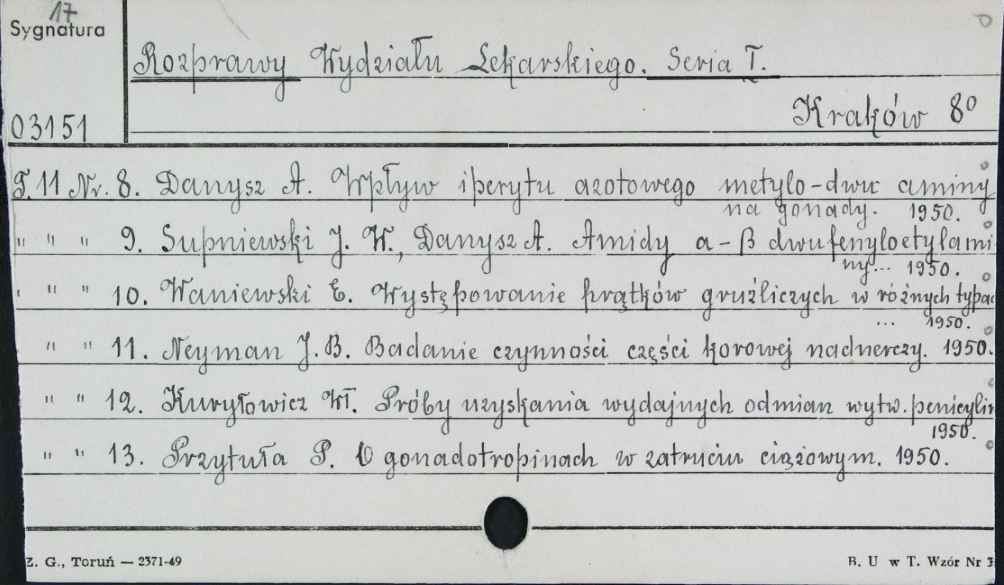 17
Sygnatura
Rozprawy Wydziału Lekarskiego. Seria I.
03151
Kraków 8°
T. 11 Nr. 8. Danysz A. Wpływ iperytu azotowego metylo-dwu aminy
na gonady. 1950.
" " " 9. Supniewski J. W., Danysz A. Amidy a-B dwufenyloetylami
ny... 1950.
" " " 10. Waniewski E. Występowanie prątków gruźliczych w różnych typac
... 1950.
" " 11. Neyman J. B. Badanie czynności części korowej nadnerczy. 1950.
" " 12. Kuryłowicz Wł. Próby uzyskania wydajnych odmian wytw. penicylin
1950.
" " 13. Przytuła P. O gonadotropinach w zatruciu ciążowym. 1950.
Z. G., Toruń — 2371-49
B. U w T. Wzór Nr 3